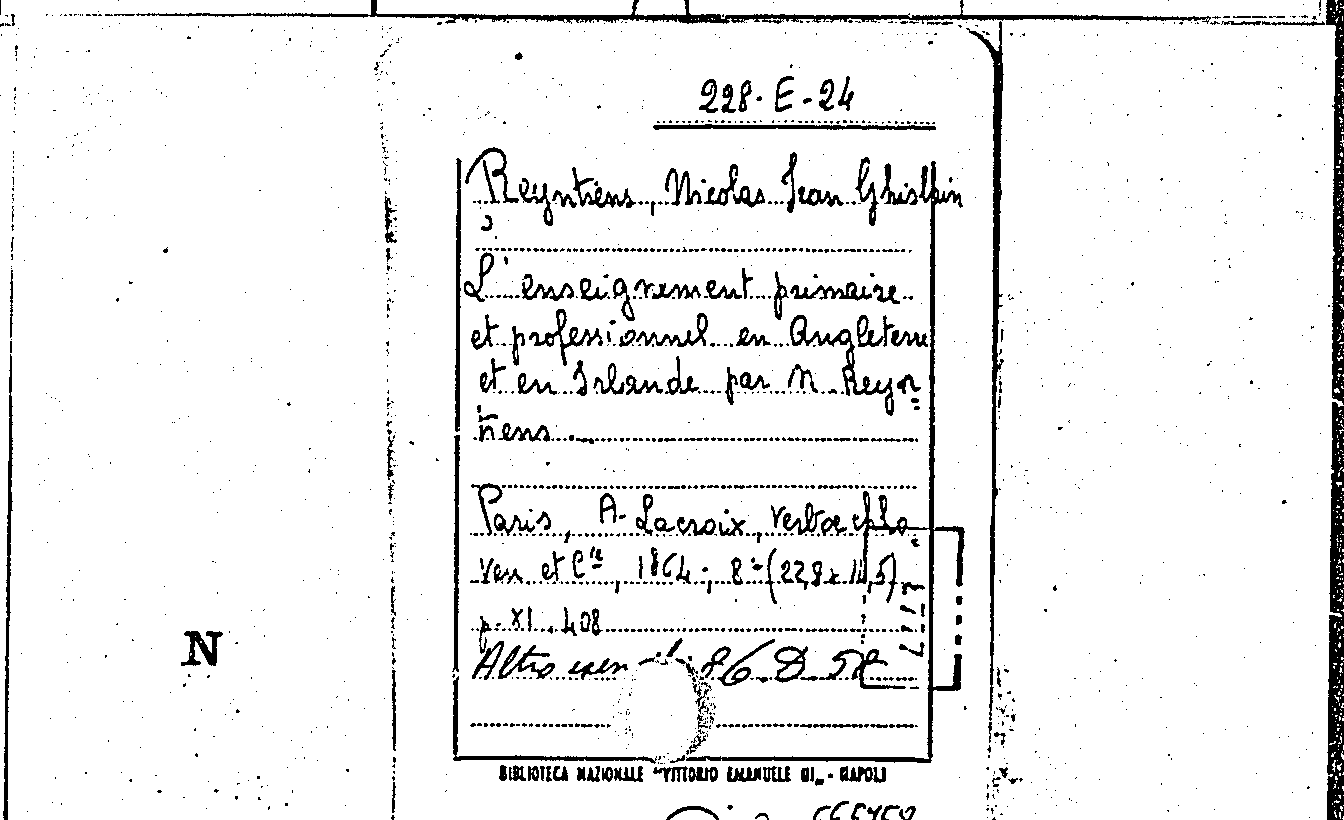 228-E-24
Reyntiens, Nicolas Jean Ghislain
L'enseignement primaire
et professionnel en Angleterre
et en Irlande par N. Reyn=
tiens...
Paris, A. Lacroix, Verboeckho
ven et C.ie, 1864; 8°(22,8x14,5)
p. XI. 408
Altro 86.D.
N
BIBLIOTECA NAZIONALE "VITTORIO EMANUELE III" - NAPOLI